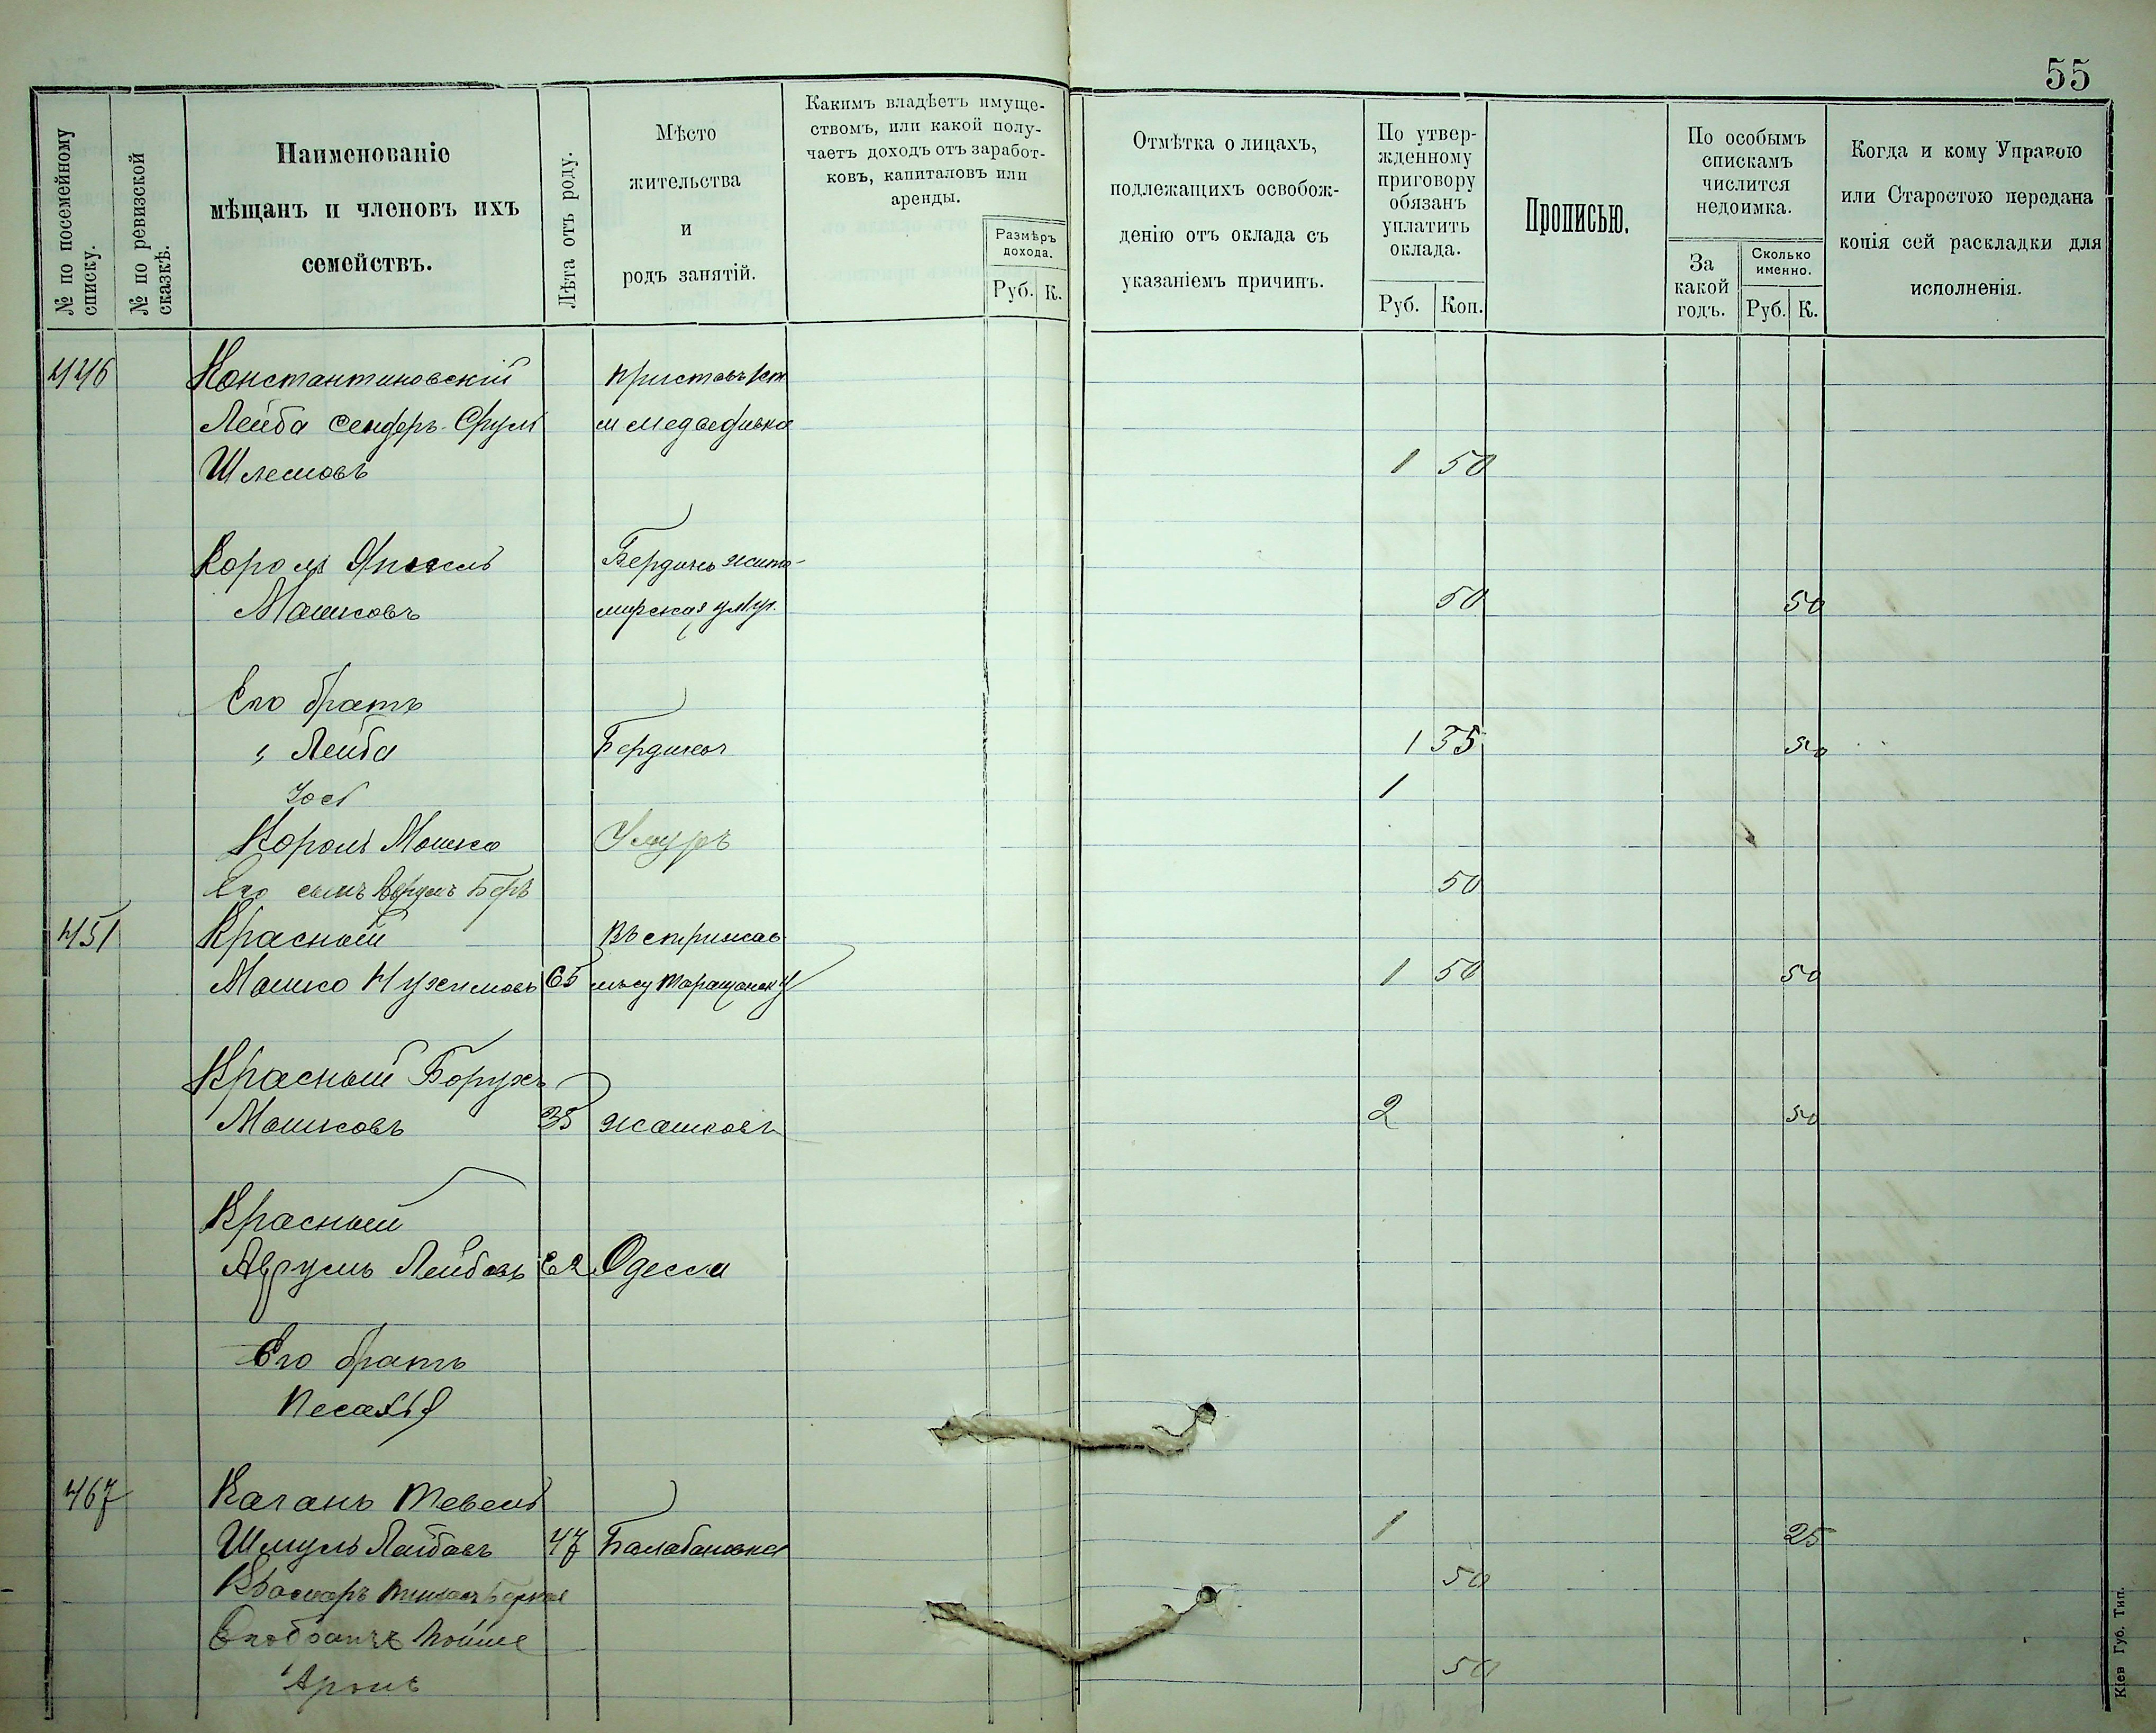 55
№ по посемейному списку.
№ по ревизской сказкѣ.
Наименованіе
мѣщанъ и членовъ ихъ
семействъ.
Лѣта отъ роду.
Мѣсто
жительства
и
родъ занятій.
Какимъ владѣетъ имуще-
ствомъ, или какой полу-
чаетъ доходъ отъ заработ-
ковъ, капиталовъ или
аренды.
Размѣръ
дохода.
Руб. К.
Отмѣтка о лицахъ,
подлежащихъ освобож-
денію отъ оклада съ
указаніемъ причинъ.
По утвер-
жденному
приговору
обязанъ
уплатить
оклада.
Руб. Коп.
Прописью.
По особымъ
спискамъ
числится
недоимка.
За
какой
годъ.
Сколько
именно.
Руб. К.
Когда и кому Управою
или Старостою передана
копія сей раскладки для
исполненія.
446 Константиновскій
Лейба Сендеръ Срулъ
1 50
Король
Бердичъ жито-
Мошковъ 50 50
Его братъ
" Лейба Бердичев 1 35 50
1
Король Мошко
Его сынъ Беръ 50
451 Красный
Мошко Нухимовъ 65 Таращанск у 1 50 50
Красный Борухъ
Мошковъ 35 Жашковъ 2 50
Красный
Аврумъ Лейбовъ 62 Одесса
Его братъ
Песахъ
467 Каганъ Тевель
Шмуль Лейбовъ 47 Балабановка 1 25
50
Его братъ
Аронъ 50
Кіев Губ. Тип.